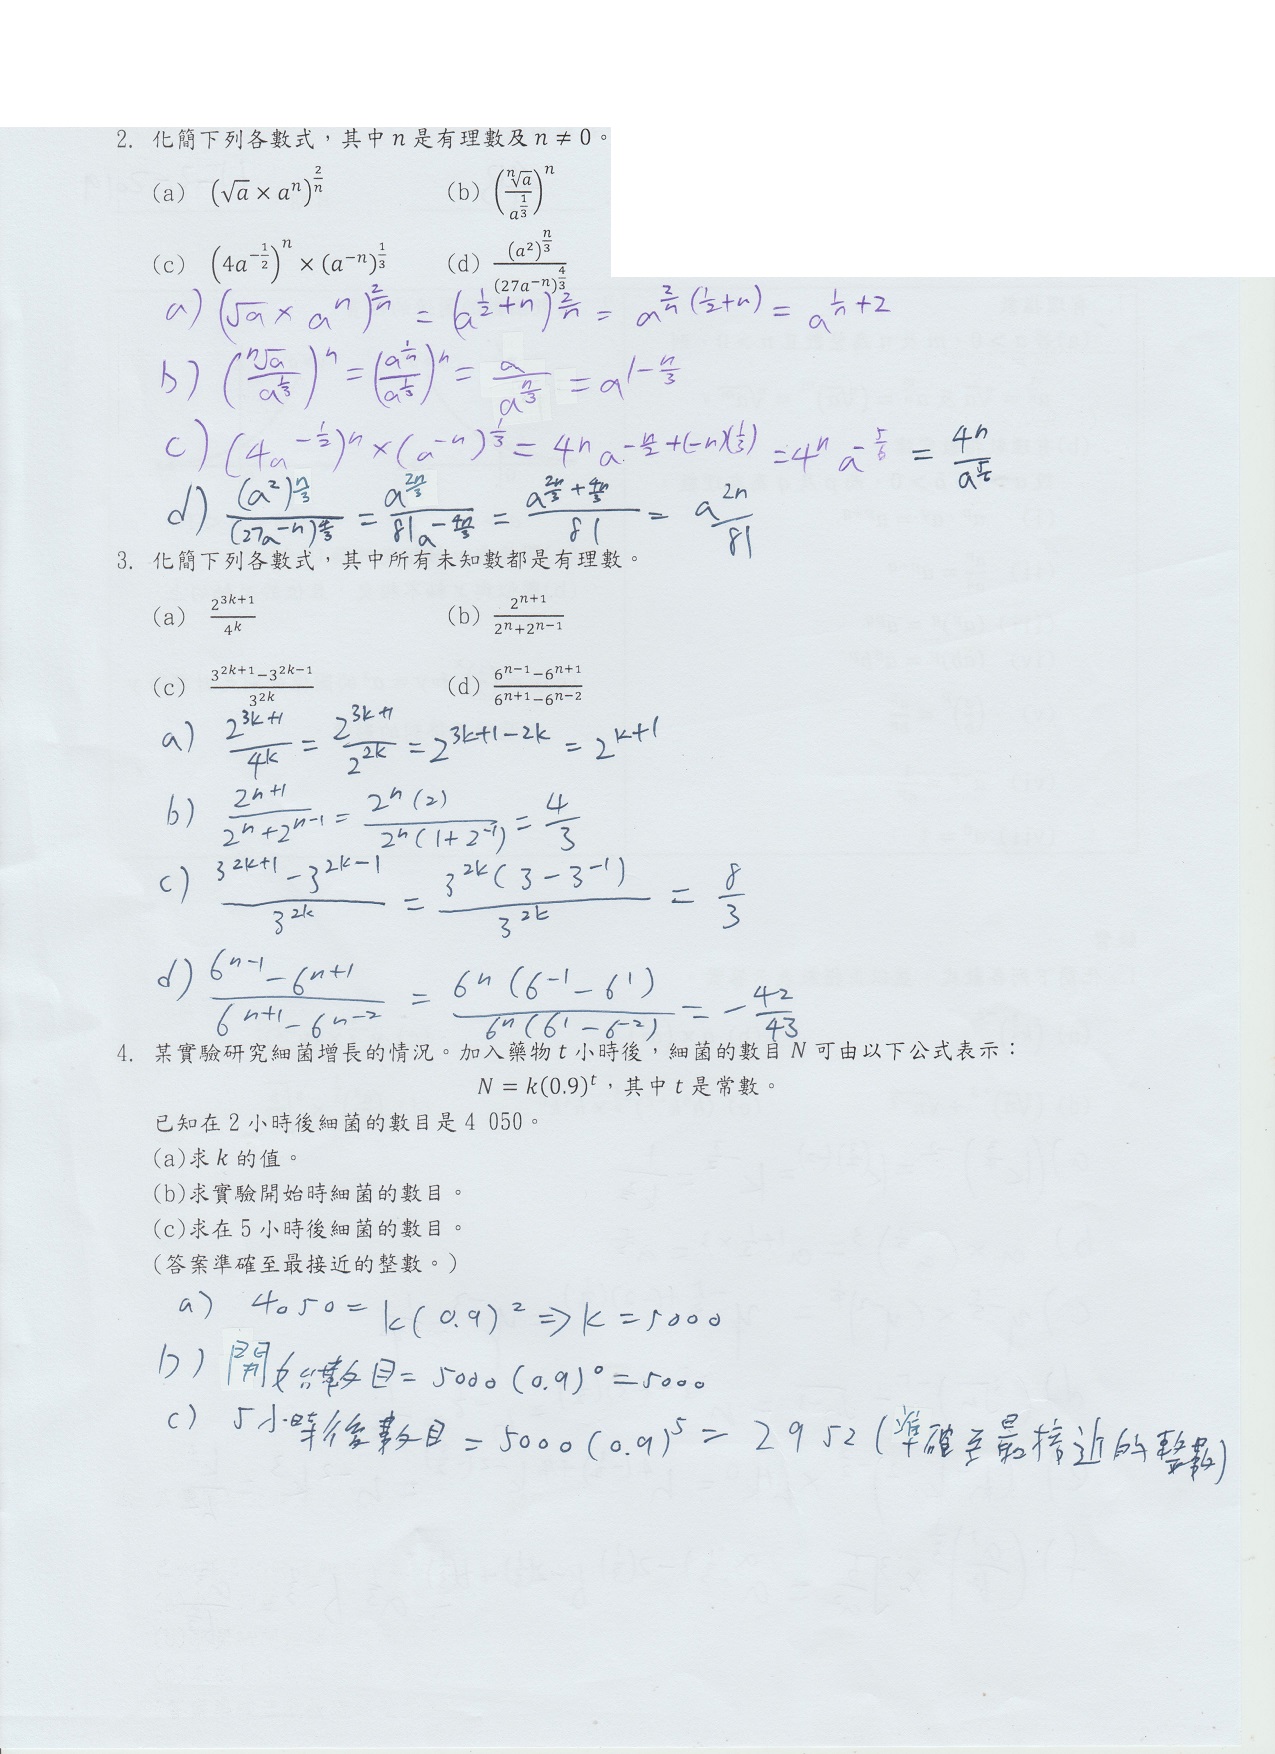 2. 化簡下列各數式，其中 n 是有理數及 n ≠ 0。
(a) (√a × a^n)^(2/n) (b) (ⁿ√a / a^(1/3))^n
(c) (4a^(-1/2))^n × (a^(-n))^(1/3) (d) (a^2)^(n/3) / (27a^(-n))^(4/3)
a) (√a × a^n)^(2/n) = (a^(1/2+n))^(2/n) = a^(2/n (1/2+n)) = a^(1/n+2)
b) (ⁿ√a / a^(1/3))^n = (a^(1/n) / a^(1/3))^n = a / a^(n/3) = a^(1-n/3)
c) (4a^(-1/2))^n × (a^(-n))^(1/3) = 4^n a^(-n/2+(-n)(1/3)) = 4^n a^(-5/6) = 4^n / a^(5/6)
d) (a^2)^(n/3) / (27a^(-n))^(4/3) = a^(2n/3) / 81a^(-4n/3) = a^(2n/3+4n/3) / 81 = a^(2n) / 81
3. 化簡下列各數式，其中所有未知數都是有理數。
(a) 2^(3k+1) / 4^k (b) 2^(n+1) / (2^n+2^(n-1))
(c) (3^(2k+1)-3^(2k-1)) / 3^(2k) (d) (6^(n-1)-6^(n+1)) / (6^(n+1)-6^(n-2))
a) 2^(3k+1) / 4^k = 2^(3k+1) / 2^(2k) = 2^(3k+1-2k) = 2^(k+1)
b) 2^(n+1) / (2^n+2^(n-1)) = 2^n(2) / 2^n(1+2^(-1)) = 4/3
c) (3^(2k+1)-3^(2k-1)) / 3^(2k) = 3^(2k)(3-3^(-1)) / 3^(2k) = 8/3
d) (6^(n-1)-6^(n+1)) / (6^(n+1)-6^(n-2)) = 6^n(6^(-1)-6^1) / 6^n(6^1-6^(-2)) = -42/43
4. 某實驗研究細菌增長的情況。加入藥物 t 小時後，細菌的數目 N 可由以下公式表示：
N = k(0.9)^t，其中 t 是常數。
已知在 2 小時後細菌的數目是 4 050。
(a)求 k 的值。
(b)求實驗開始時細菌的數目。
(c)求在 5 小時後細菌的數目。
(答案準確至最接近的整數。)
a) 4050 = k(0.9)^2 ⇒ k = 5000
b) 開始數目 = 5000(0.9)^0 = 5000
c) 5小時後數目 = 5000(0.9)^5 = 2952 (準確至最接近的整數)